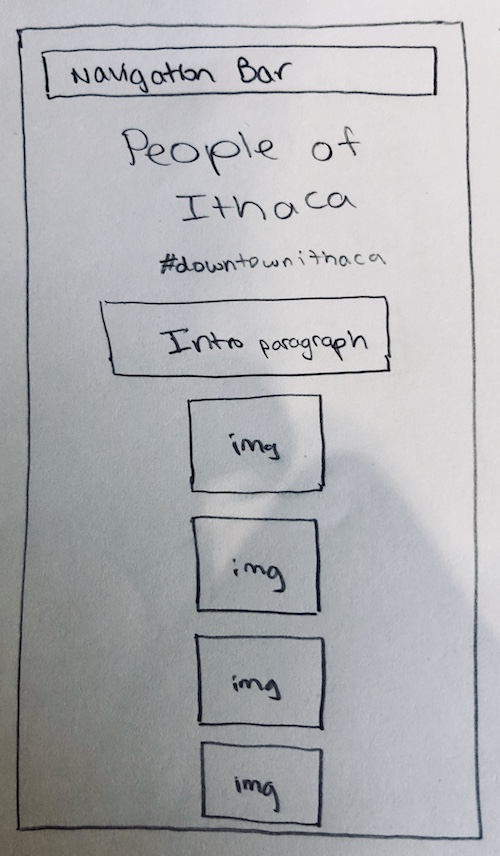 Navigation Bar
People of
Ithaca
#downtownithaca
Intro paragraph
img
img
img
img